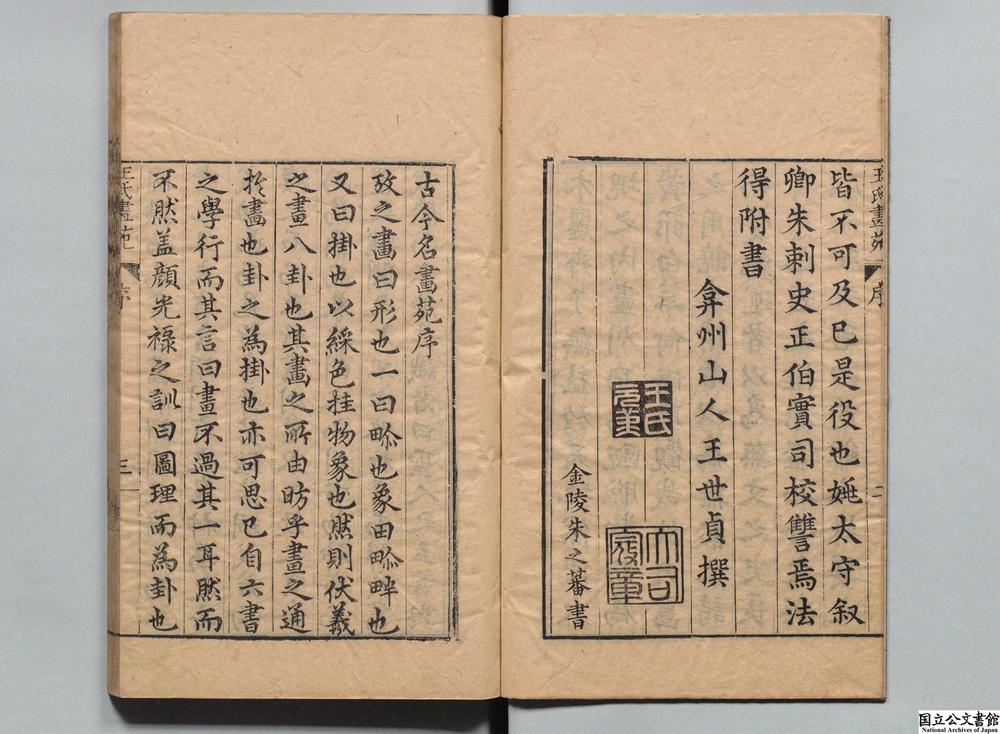 王氏畫苑
序
二
皆不可及已是役也姚太守叙
卿朱刺史正伯實司校讐焉法
得附書
弇州山人王世貞撰
王氏元美
大司寇章
金陵朱之蕃書
古今名畫苑序
攷之畫曰形也一曰畍也象田畍畔也
又曰掛也以綵色挂物象也然則伏羲
之畫八卦也其畫之所由昉乎畫之通
於畫也卦之為掛也亦可思已自六書
之學行而其言曰畫不過其一耳然而
不然盖顔光祿之訓曰圖理而為卦也
王氏畫苑
序
三
国立公文書館
National Archives of Japan